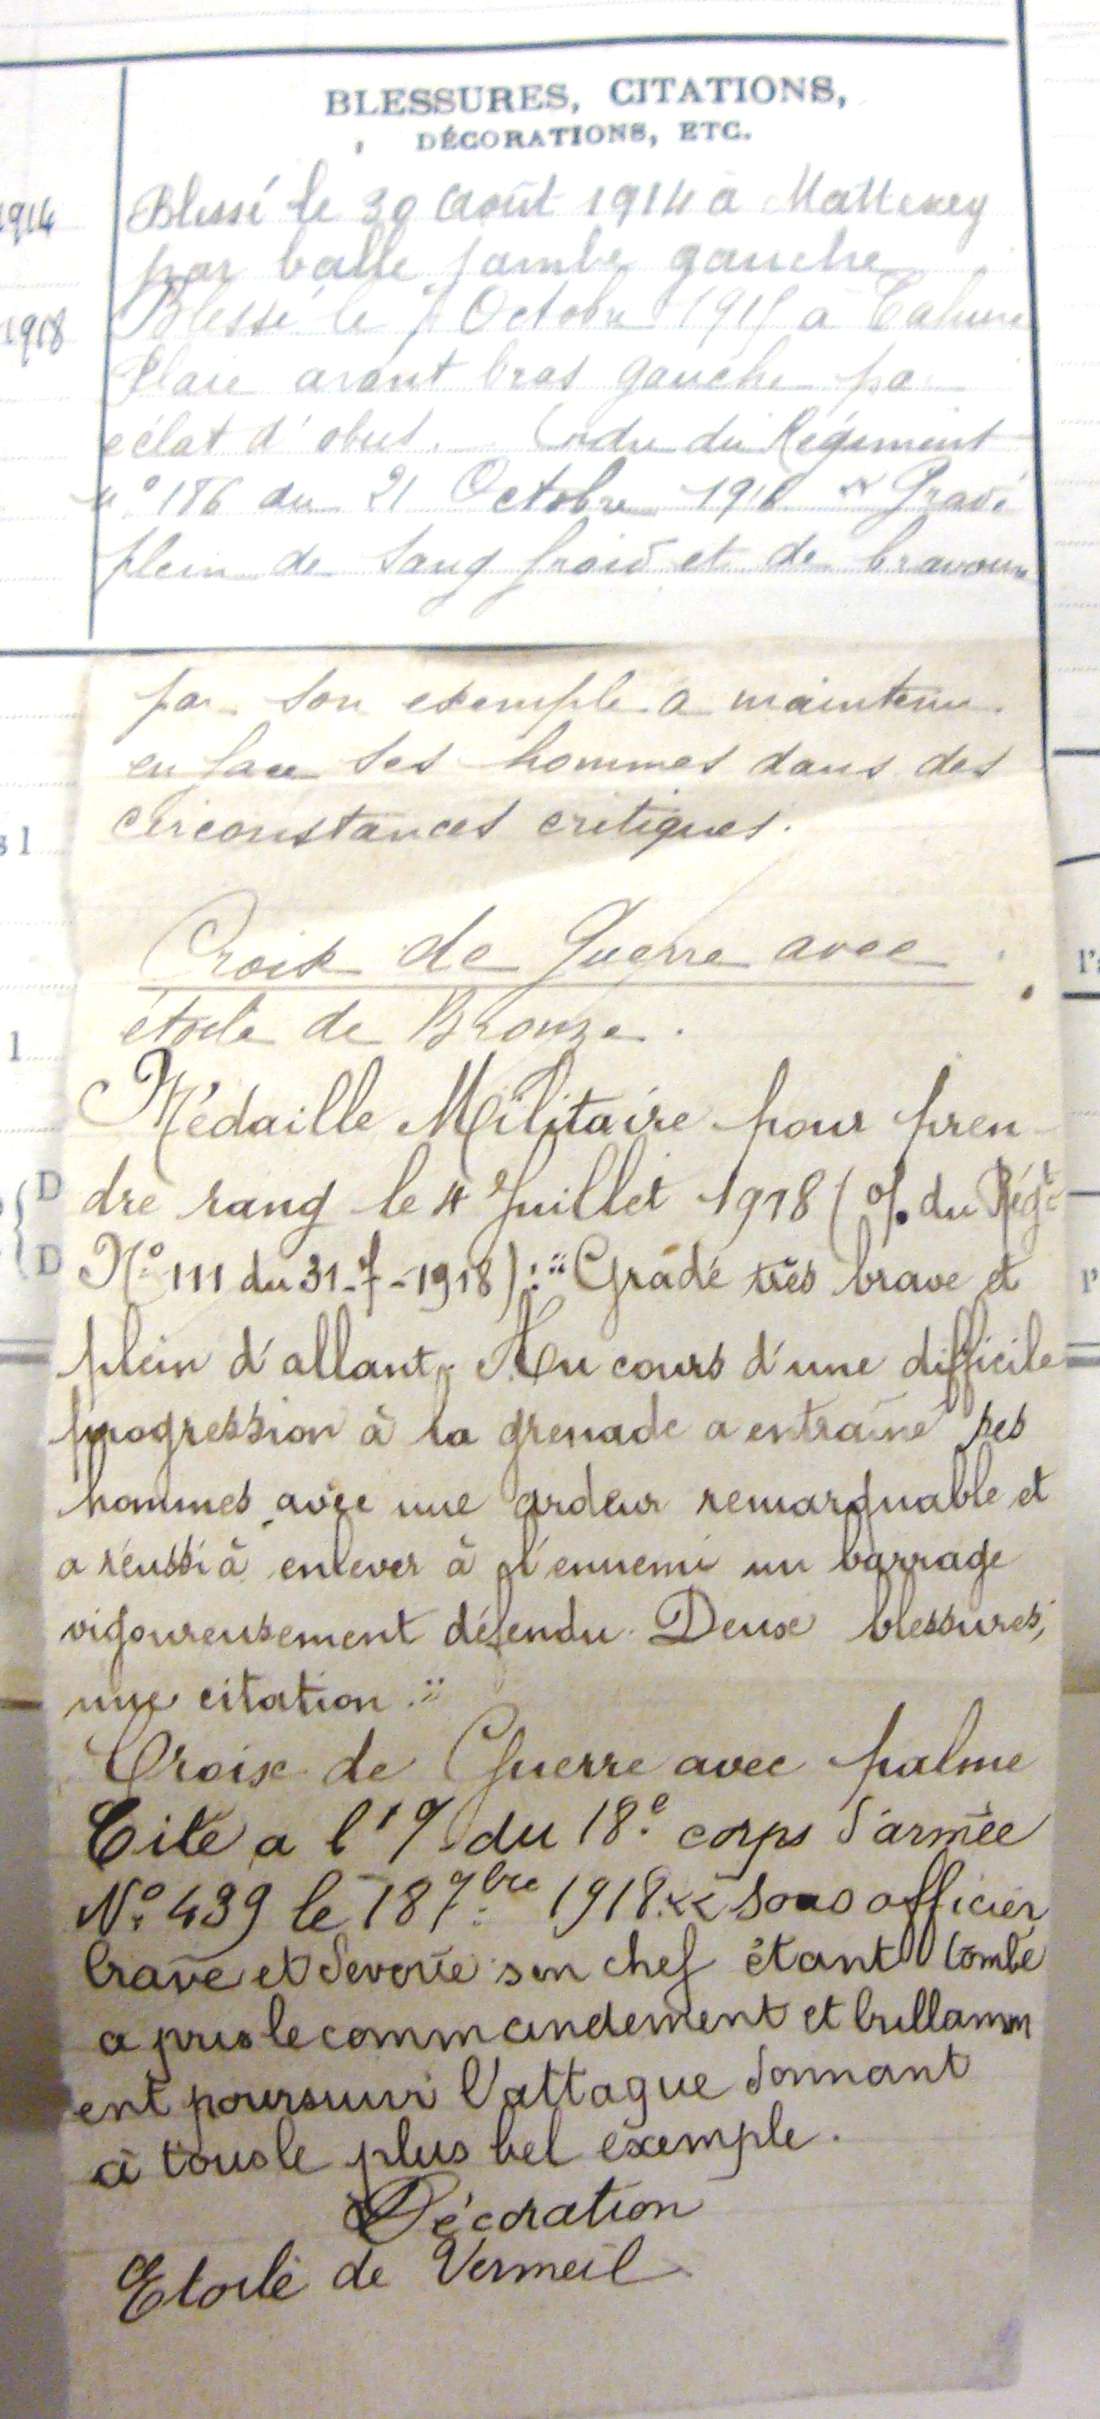 BLESSURES, CITATIONS,
DÉCORATIONS, ETC.
1914 Blessé le 30 Août 1914 à Mattexey
par balle jambe gauche
1918 Blessé le 7 Octobre 1915 à Tahure
Plaie avant bras gauche pa
éclat d'obus. Ordre du Régiment
n° 186 du 21 Octobre 1916 " Gradé
plein de sang froid et de bravoure
par son exemple a maintenu
en face ses hommes dans des
circonstances critiques.
Croix de Guerre avec
étoile de Bronze.
Médaille Militaire pour pren
dre rang le 4 Juillet 1918 (O/. du Régt
N° 111 du 31-7-1918): "Gradé très brave et
plein d'allant. Au cours d'une difficile
progression à la grenade a entraîné ses
hommes avec une ardeur remarquable et
a réussi à enlever à l'ennemi un barrage
vigoureusement défendu. Deux blessures,
une citation."
Croix de Guerre avec palme
Cité a l'O/ du 18e corps d'armée
N° 439 le 18 7bre 1918. << Sous officier
brave et devoué son chef étant tombé
a pris le commandement et brillamm
ent poursuivi l'attaque donnant
à tous le plus bel exemple.
Décoration
Etoile de Vermeil